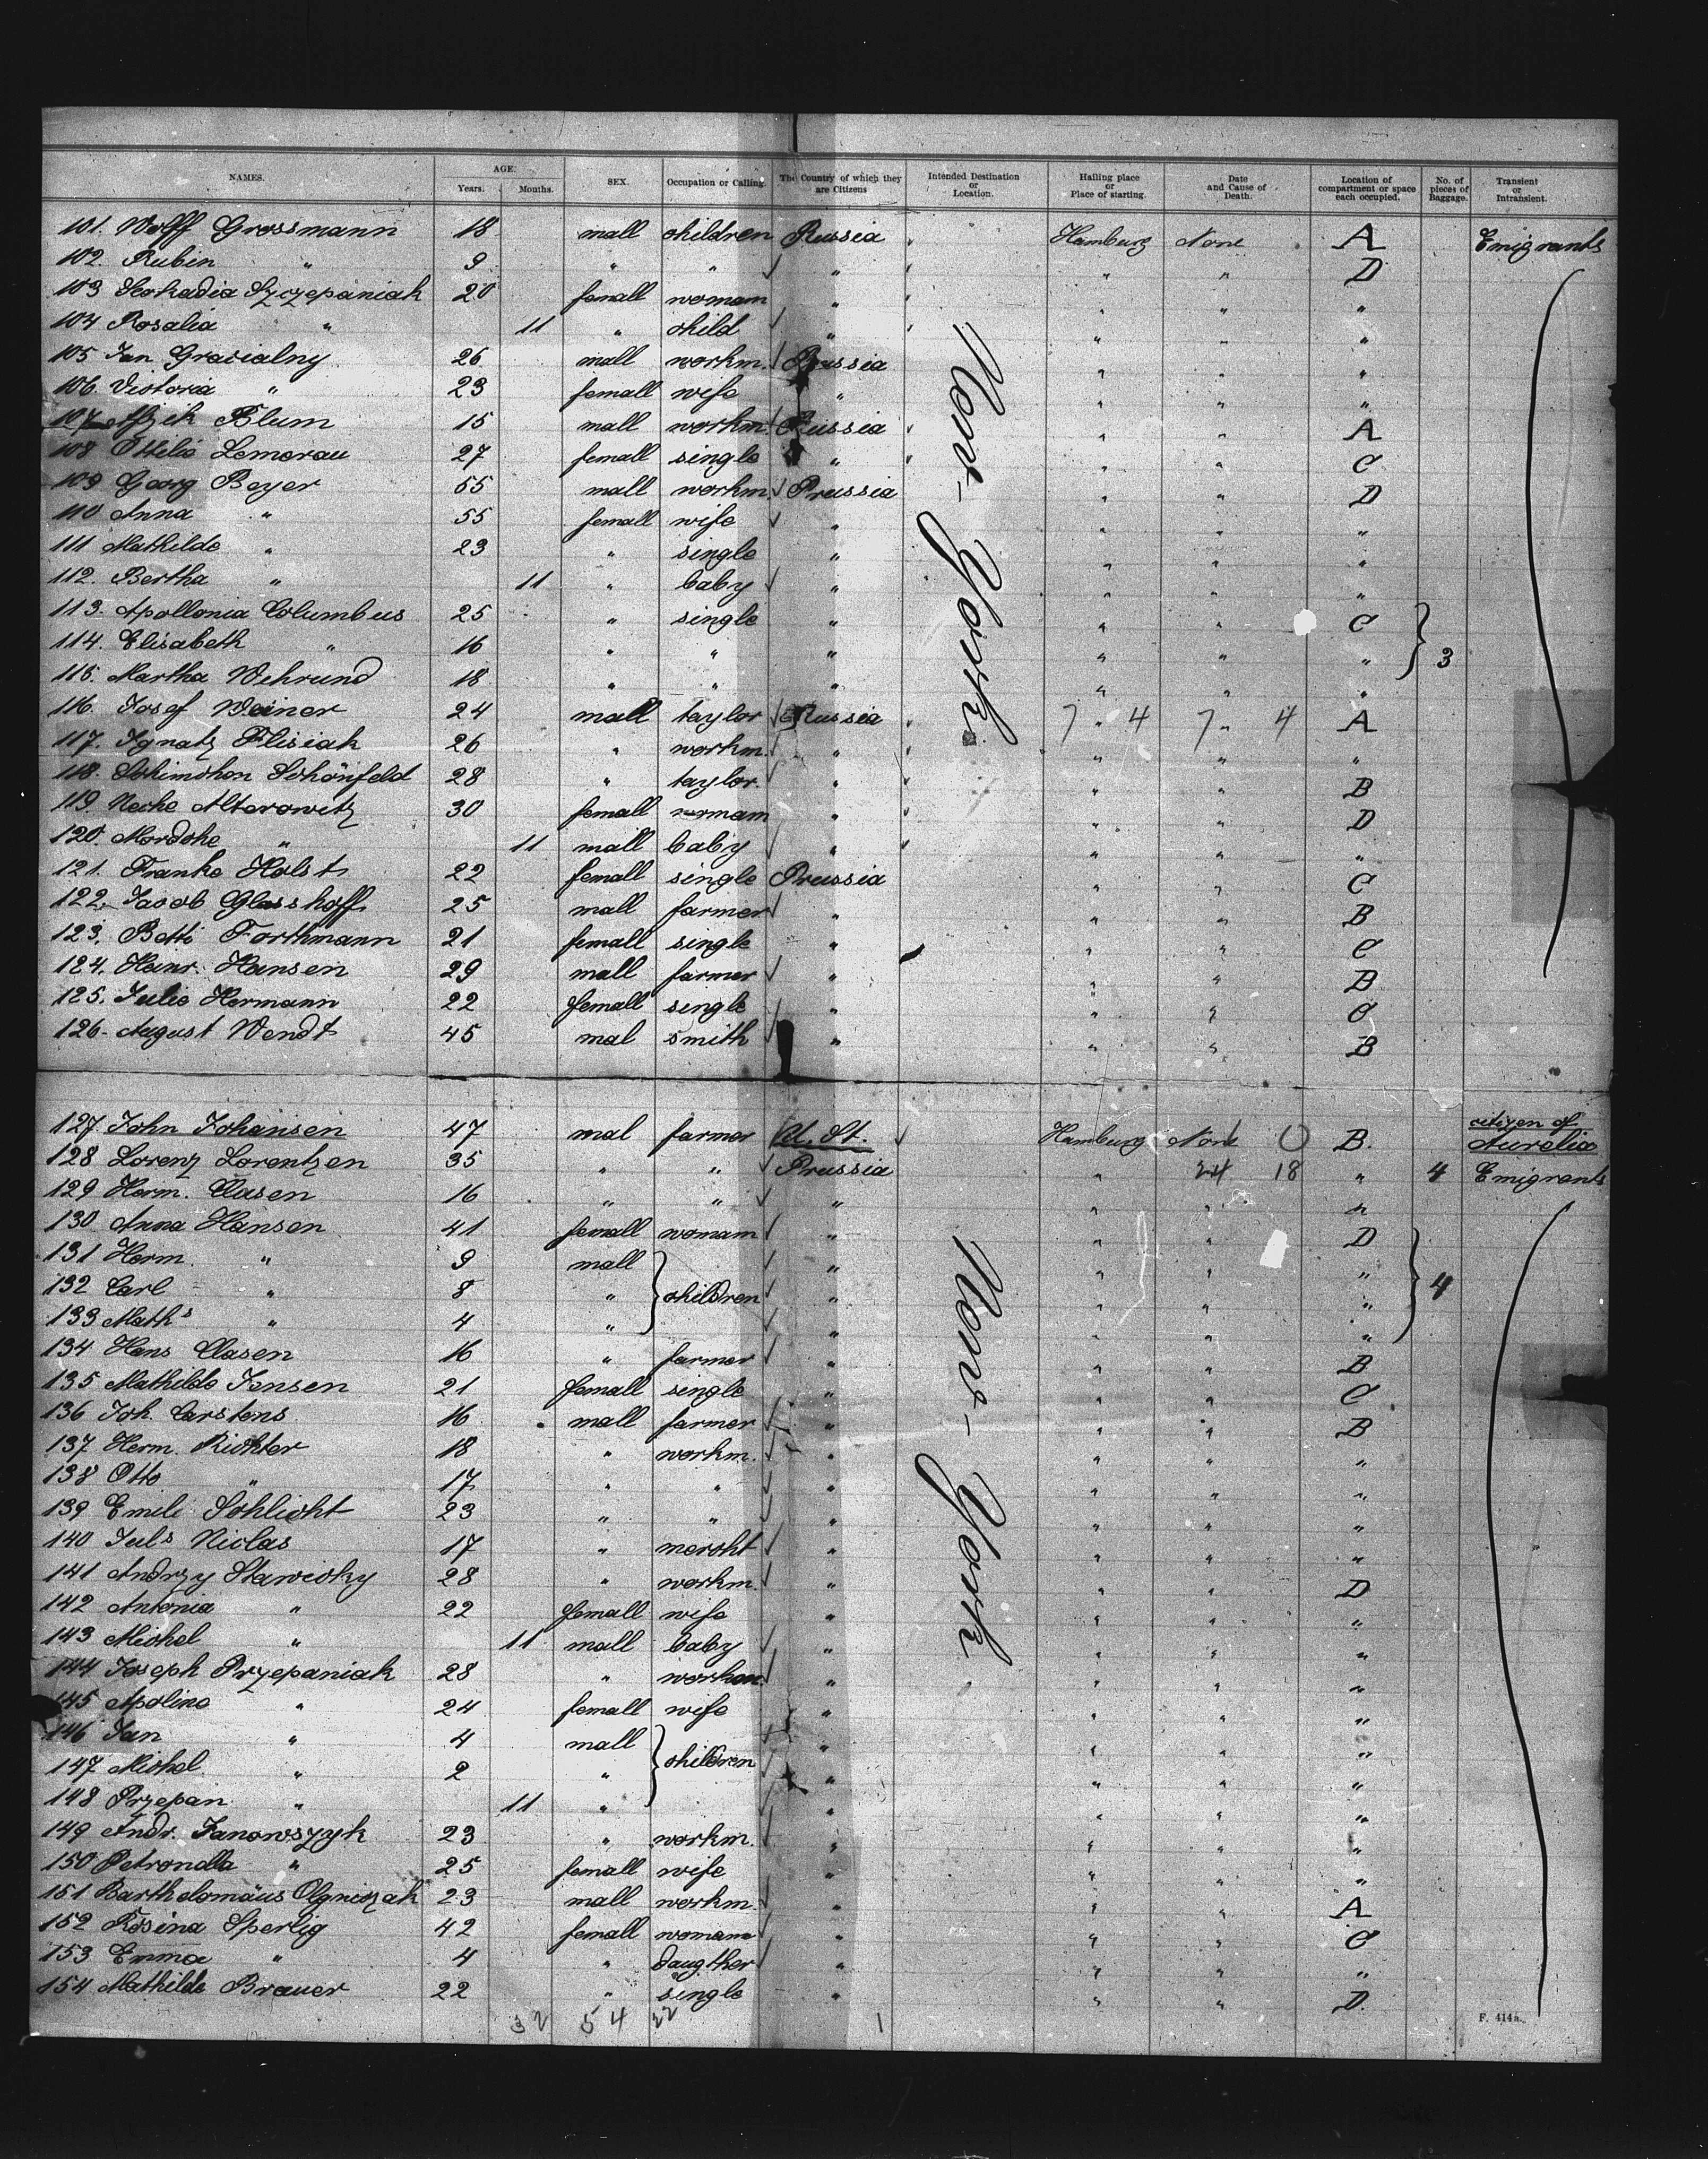 NAMES. AGE. Years. Months. SEX. Occupation or Calling. The Country of which they are Citizens Intended Destination or Location. Hailing place or Place of starting. Date and Cause of Death. Location of compartment or space each occupied. No. of pieces of Baggage. Transient or Intransient.
101. Wolff Grossmann 18 mall children Russia Hamburg None A Emigrants
102. Rubin " 9 " " " " " D
103 Leokadia Szczepaniak 20 femall womam " " " "
104 Rosalia " 11 " child " " " "
105 Jan Gracialny 26 mall workm. Prussia " " "
106. Victoria " 23 femall wife " " " "
107 Aizik Blum 15 mall workm Russia " " A
108 Ottilie Lemorau 27 femall single " " " C
109 Georg Beyer 55 mall workm. Prussia " " D
110 Anna " 55 femall wife " " " "
111 Mathilde " 23 " single " " " "
112. Bertha " 11 " baby " " " "
113. Apollonia Columbus 25 " single " " " C
114. Elisabeth " 16 " " " " " " 3
115. Martha Wehrund 18 " " " " " "
116. Josef Weiner 24 mall taylor Russia 7 " 4 7 " 4 A
117. Ignatz Flisiak 26 " workm. " " " "
118. Schimchon Schönfeld 28 " taylor. " " " B
119. Neche Alterowitz 30 femall womam " " " D
120. Mordche " 11 mall baby " " " "
121. Franke Holst 22 femall single Prussia " " C
122. Jacob Glasshoff 25 mall farmer " " " B
123. Betti Forthmann 21 femall single " " " C
124. Heinr. Hansen 29 mall farmer " " " B
125. Julie Hermann 22 femall single " " " C
126. August Wendt 45 mal smith " " " B
New-Yorck.
127 John Johansen 47 mal farmer U. St. Hamburg None B. citizen of Aurelia
128 Lorenz Lorentzen 35 " " Prussia " 24 18 " 4 Emigrants
129 Herm. Clasen 16 " " " " " "
130 Anna Hansen 41 femall womam " " " D
131 Herm. " 9 mall " " " "
132 Carl " 8 " children " " " " 4
133 Maths " 4 " " " " "
134 Hans Clasen 16 " farmer " " " B
135 Mathilde Jensen 21 femall single " " " C
136 Joh. Carstens 16 mall farmer " " " B
137 Herm. Richter 18 " workm. " " " "
138 Otto " 17 " " " " " "
139 Emile Schlicht 23 " " " " " "
140 Juls Niclas 17 " mercht " " " "
141 Andrzy Stawicky 28 " workm. " " " D
142 Antonia " 22 femall wife " " " "
143 Michel " 11 mall baby " " " "
144 Joseph Przepaniak 28 " workm. " " " "
145 Apoline " 24 femall wife " " " "
146 Jan " 4 mall " " " "
147 Michel " 2 " children " " " "
148 Przepan " 11 " " " " "
149 Andr. Janowszyk 23 " workm. " " " "
150 Petronella " 25 femall wife " " " "
151 Bartholomäus Olgniczak 23 mall workm. " " " A
152 Rosina Sperlig 42 femall womam " " " C
153 Emma " 4 " daugther " " " "
154 Mathilde Brauer 22 " single " " " D.
New-Yorck.
32 54 22 1
F. 414a.